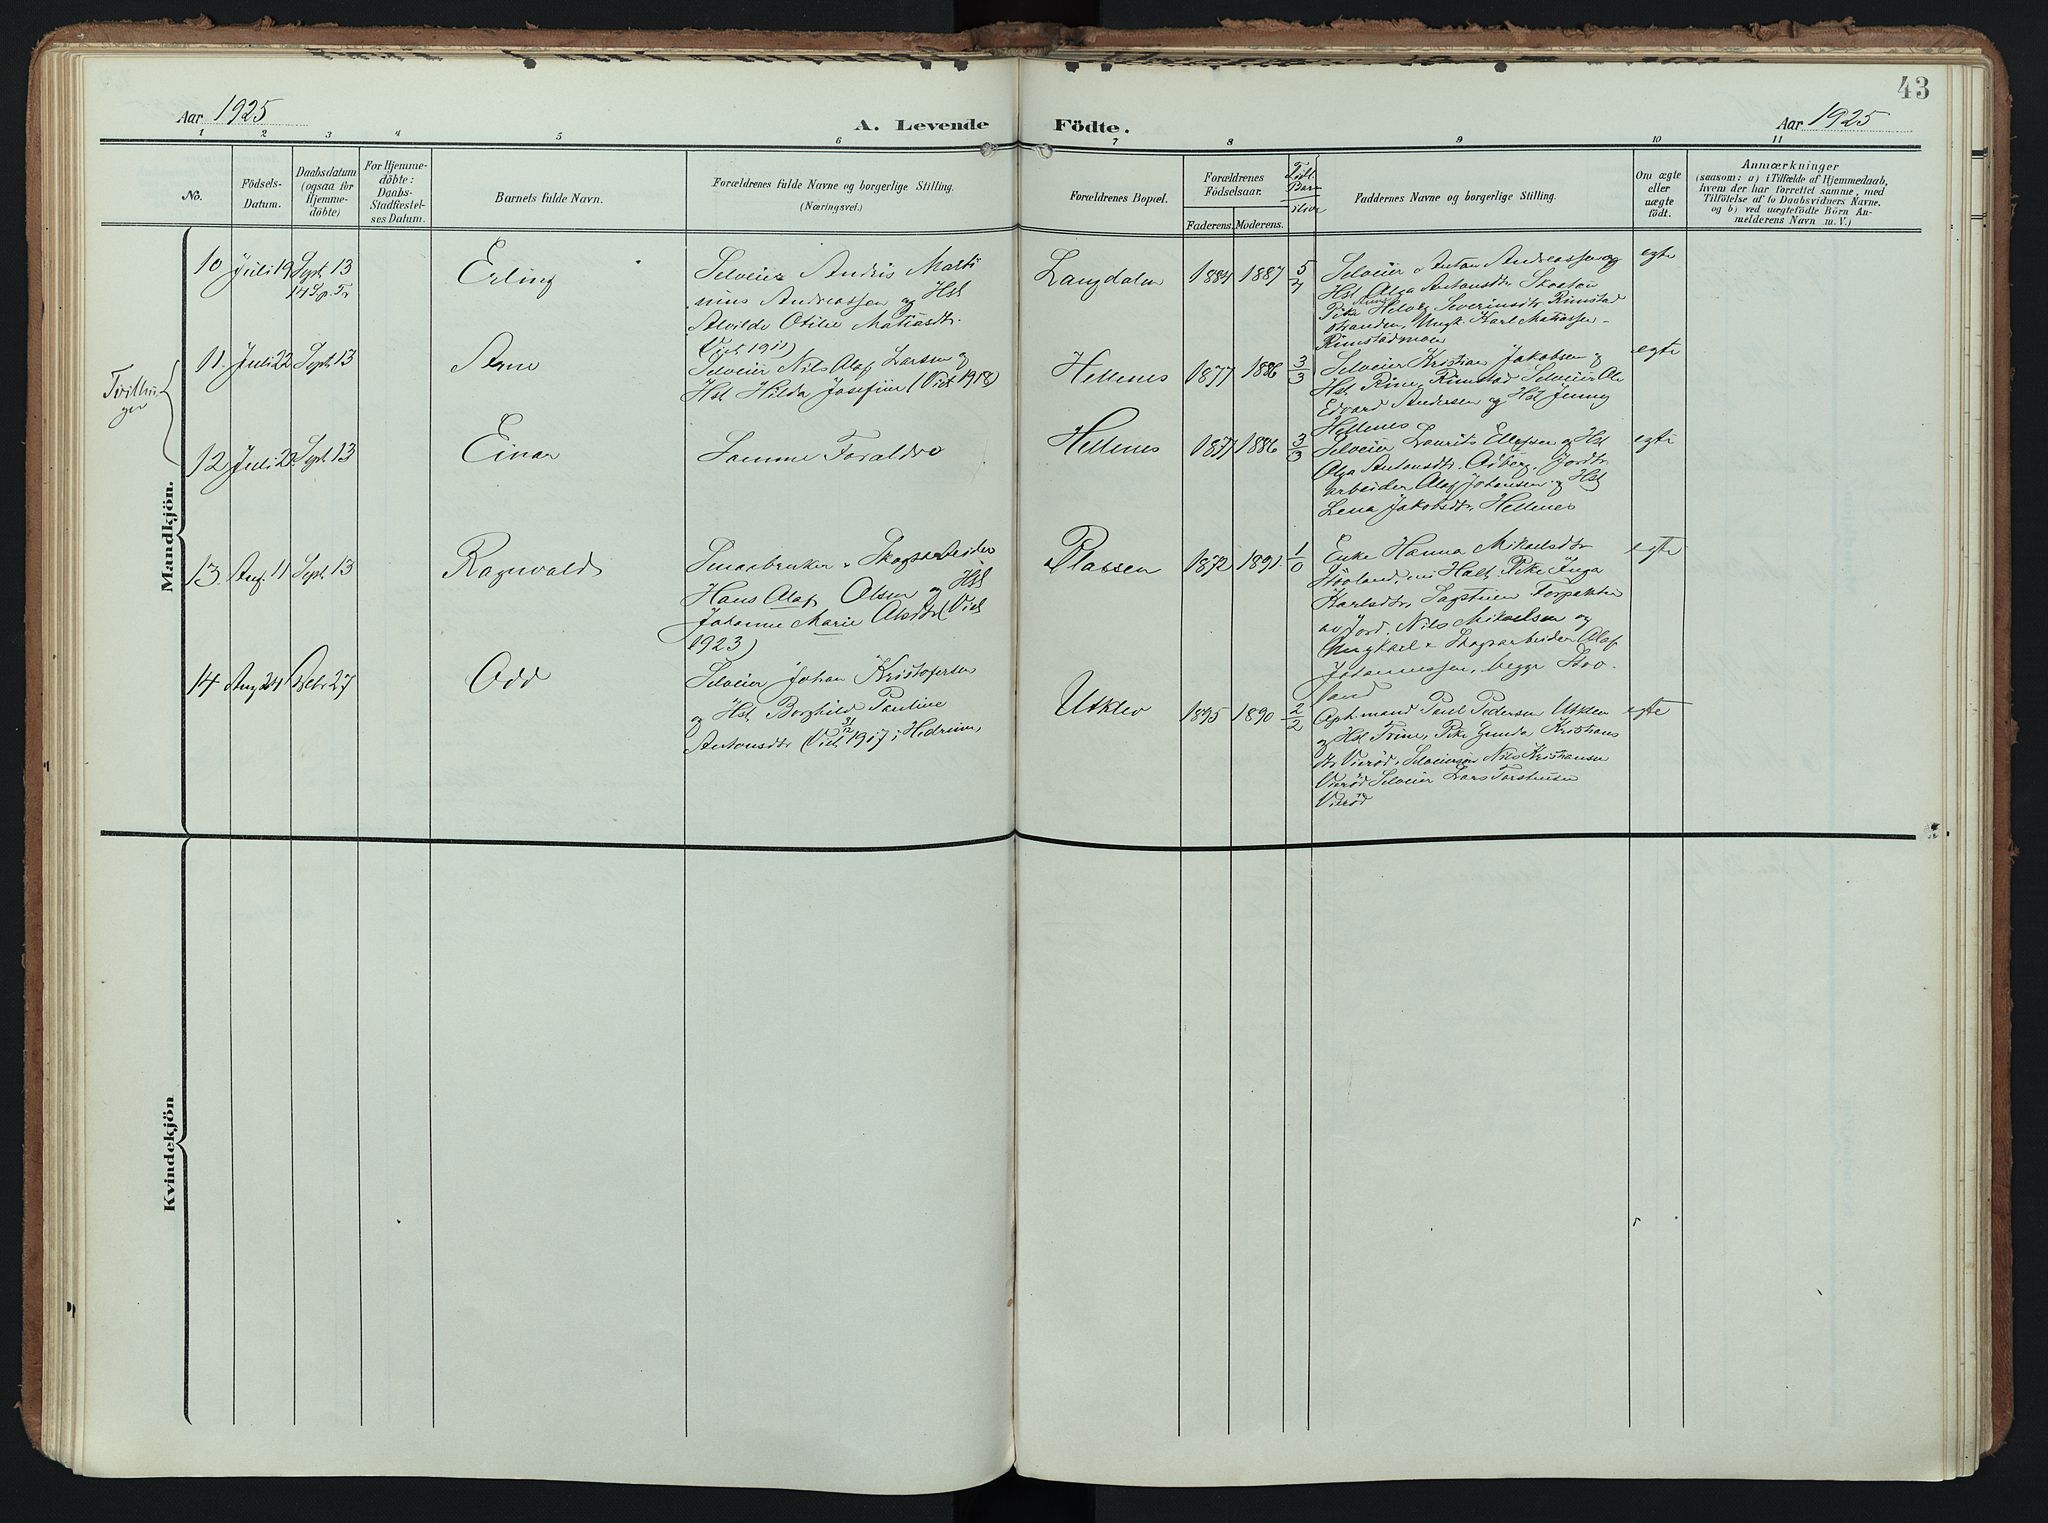 43
Aar 1925
A. Levende Födte.
Aar 1925
1 2 3 4 5 6 7 8 9 10 11
No.
Födsels-
Datum.
Daabsdatum
(ogsaa for
Hjemme-
döbte)
For Hjemme-
döbte:
Daabs-
Stadfæstel-
ses Datum.
Barnets fulde Navn.
Forældrenes fulde Navne og borgerlige Stilling.
(Næringsvei.)
Forældrenes Bopæl.
Forældrenes
Födselsaar.
Faderens.
Moderens.
Barn
ilive
Faddernes Navne og borgerlige Stilling.
Om ægte
eller
uægte
födt.
Anmærkninger
(saasom: a) i Tilfælde af Hjemmedaab,
hvem der har forrettet samme, med
Tilföielse af to Daabsvidners Navne.
og b) ved uægtefödte Börn An-
melderens Navn m. V.)
Mandkjön.
10
Juli 19
Sept. 13
Erling
Selveier Andris Marti
nius Andreassen og Hst
Alvilde Otilie Matiasdtr.
(Viet 1911)
Langdalen
1884
1887
5/4
Selveier Anton Andreassen og
Hst Olga Antonsdtr. Skaaten
Pike Helvig Severinsdtr Rimstad
stranden, Ungk. Karl Matiassen
Rimstadmoen
egte
Tvillin
ger
11.
Juli 22
Sept. 13
Arne
Selveier Nils Olaf Larssen og
Hst Hilda Josefine (Viet 1918)
Hellenes
1877
1886
3/3
Selveier Kristian Jakobsen og
Hst Rine, Rimstad Selveier Ole
Edvard Andersen og Hst Jenny
Hellenes
egte
12
Juli 22
Sept. 13
Einar
Samme Foraldre
Hellenes
1877
1886
3/3
Selveier Laurits Ellefsen og Hst
Olga Antonsdtr. Åsberg, Jordbr.
arbeider Olaf Johansen og Hst
Lena Jakobsdtr, Hellenes
egte
13
Aug. 11
Sept. 13
Ragnvald
Smaabruker & Skogsarbeider
Hans Olaf Olsen og Hst
Johanne Marie Olesdtr (Viet
1923)
Plassen
1872
1891
1/0
Enke Hanna Mikaelsdtr
Höoland, Pike Inga
Karlsdtr, Sagstuen Forpakter
av Jord, Nils Mikaelsen og
Ungkael & Skogsarbeider Olaf
Johannessen, begge Hvo
land
egte
14
Aug 24
Debr 27
Odd
Selveier Johan Kristofersen
og Hst Borghild Pauline
Antonsdtr (Viet 31/12 1917 i Hedrum)
Utklev
1895
1890
2/2
Opt.mand Paul Pedersen Utklev
og Hst Trine, Pike Gunda Kristians
dtr Vierød, Selveiersøn Nils Kristiansen
Vierød Selveier Lars Torstensen
Vierød
egte
Kvindekjön